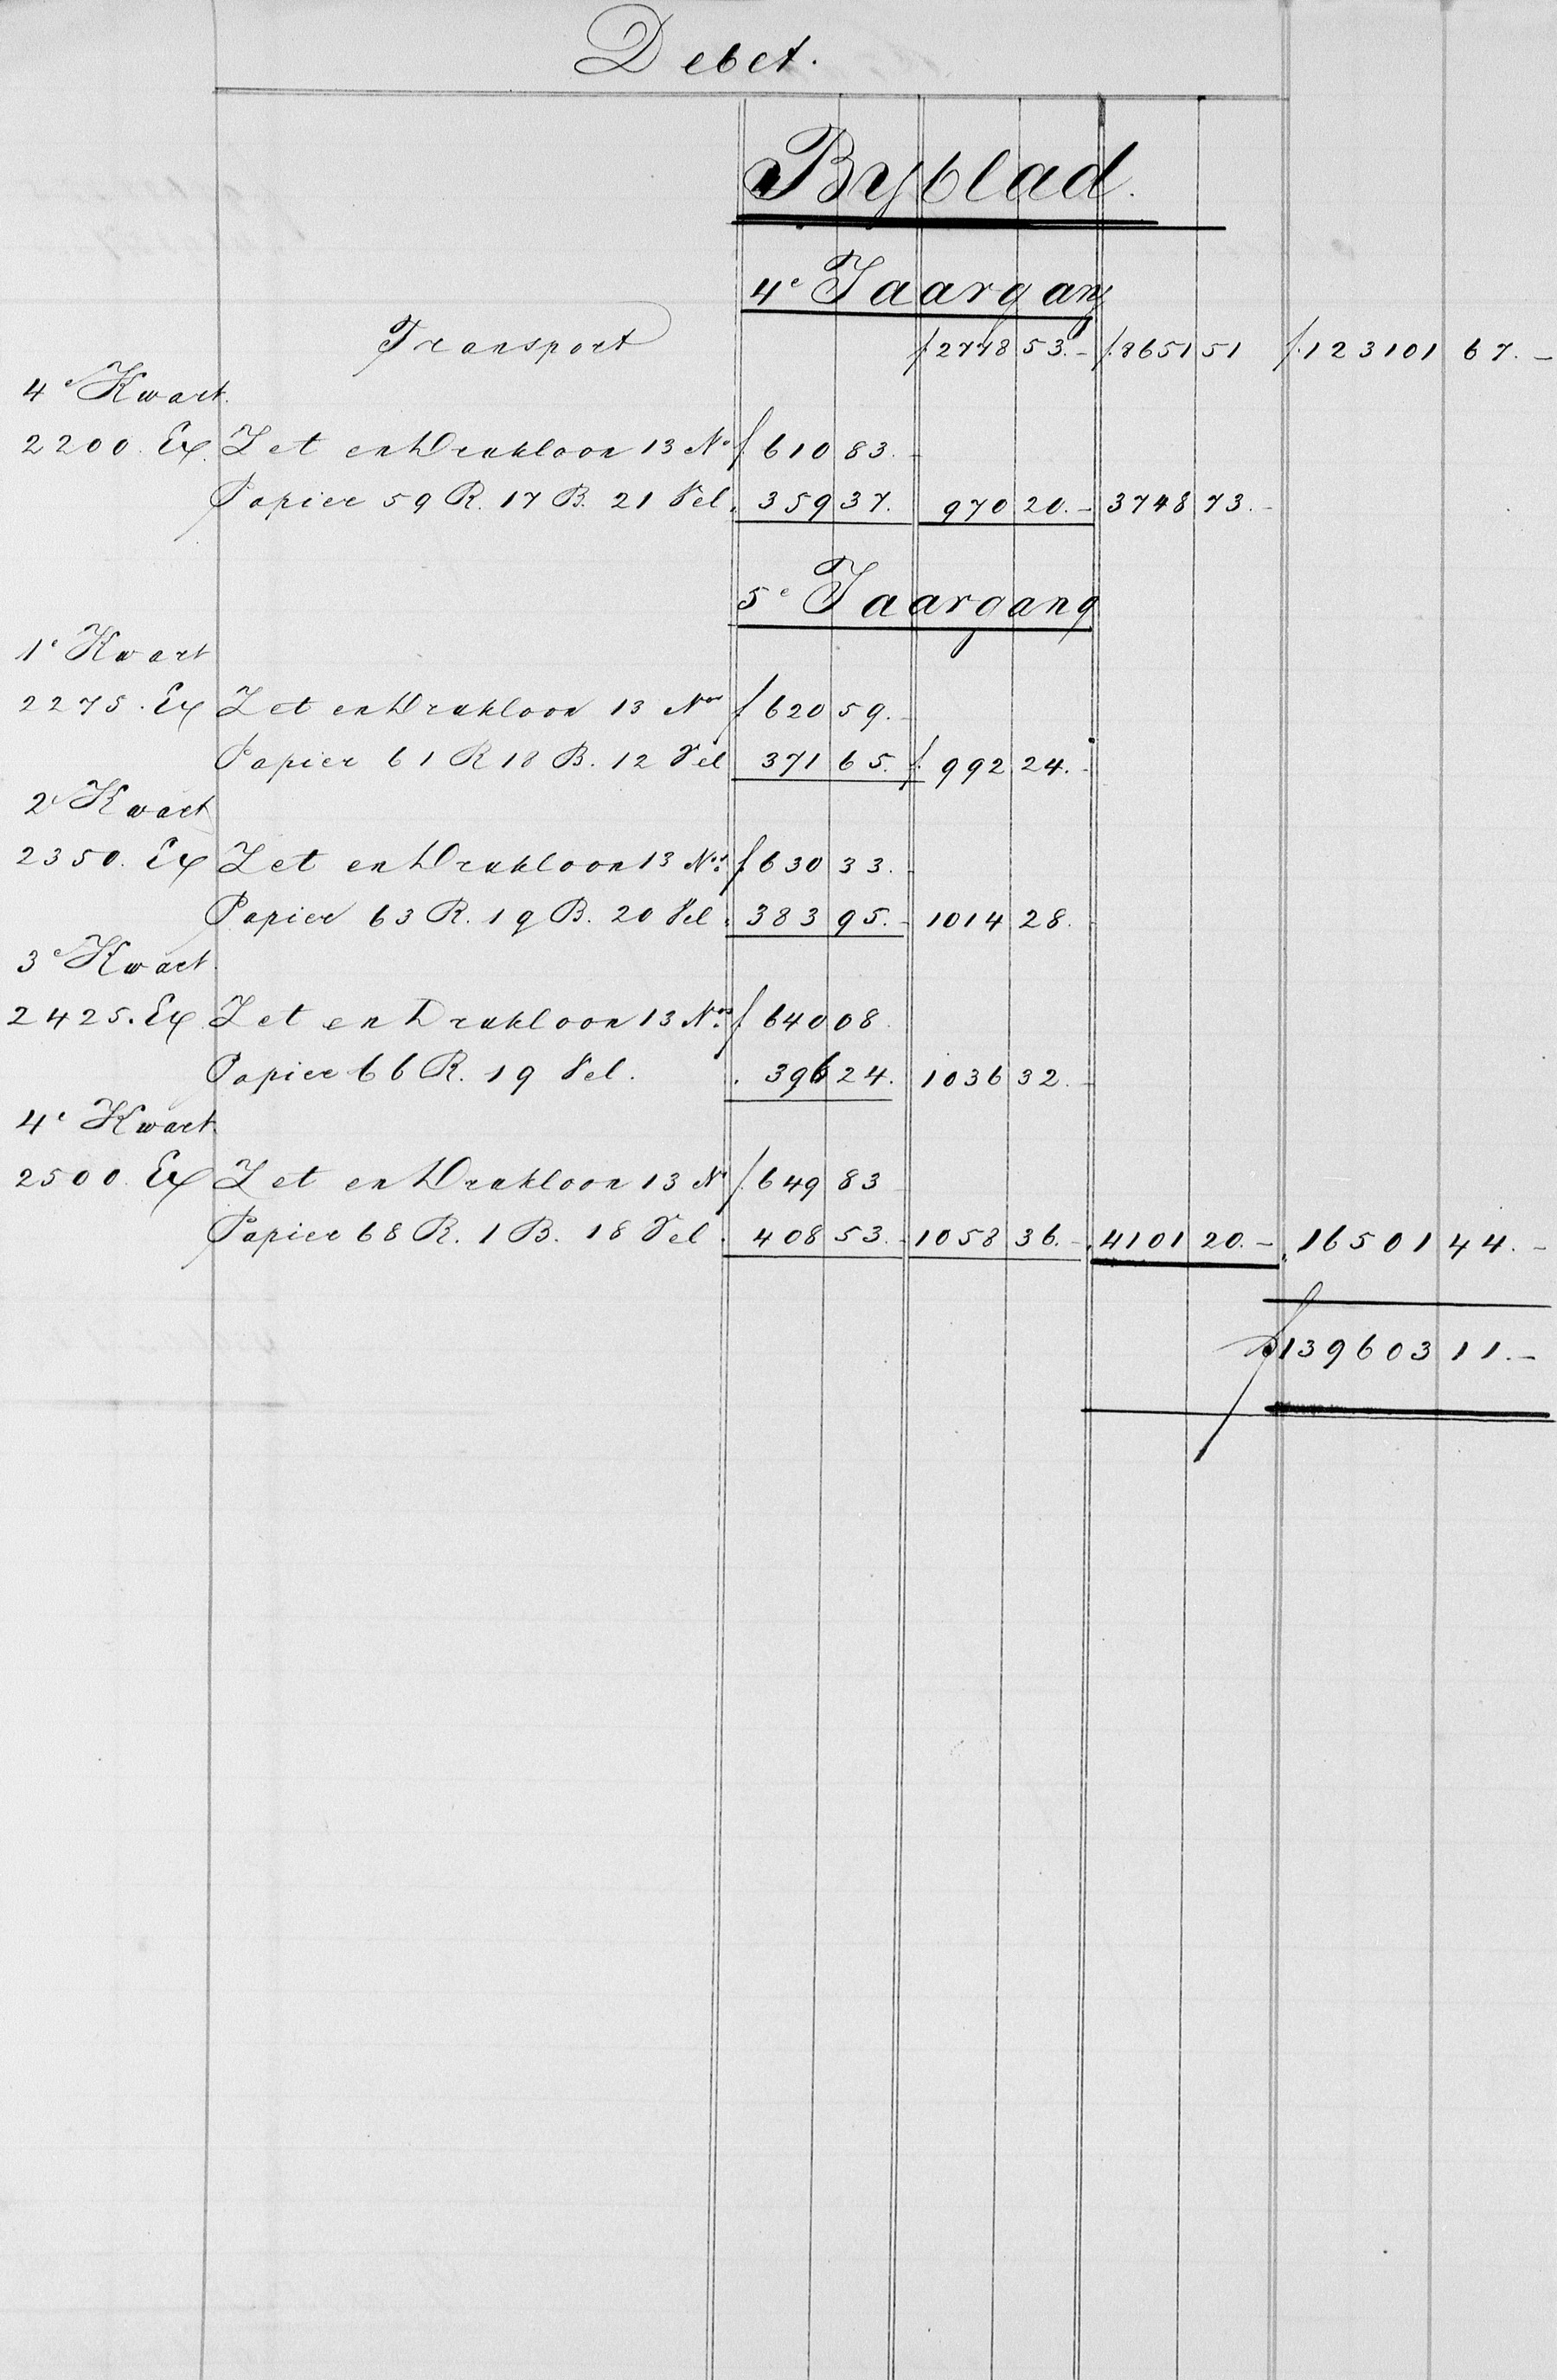 Debet.
Byblad.
4e Jaargang
Transport f 2778 53.- f. 8651 51 f. 123101 67.-
4e Kwart.
2200. Ex. Zet en Drukloon 13 No f. 610 83.-
Papier 59 R. 17 B. 21 Vel. 359 37. 970 20.- 3748 73.-
5e Jaargang
1e Kwart
2275. Ex Zet en Drukloon 13 Nos f 620 59.-
Papier 61 R 18 B. 12 Vel 371 65. f. 992 24.-
2e Kwart
2350. Ex Zet en Drukloon 13 Nos f. 630 33.-
Papier 63 R. 19 B. 20 Vel. 383 95.- 1014 28.-
3e Kwart.
2425. Ex Zet en Drukloon 13 Nos f. 640 08.
Papier 66 R. 19 Vel. . 396 24. 1036 32.-
4e Kwart.
2500. Ex Zet en Drukloon 13 No f. 649 83
Papier 68 R. 1 B. 18 Vel. 408 53.- 1058 36.- 4101 20.- 16501 44.-
f 139603 11.-